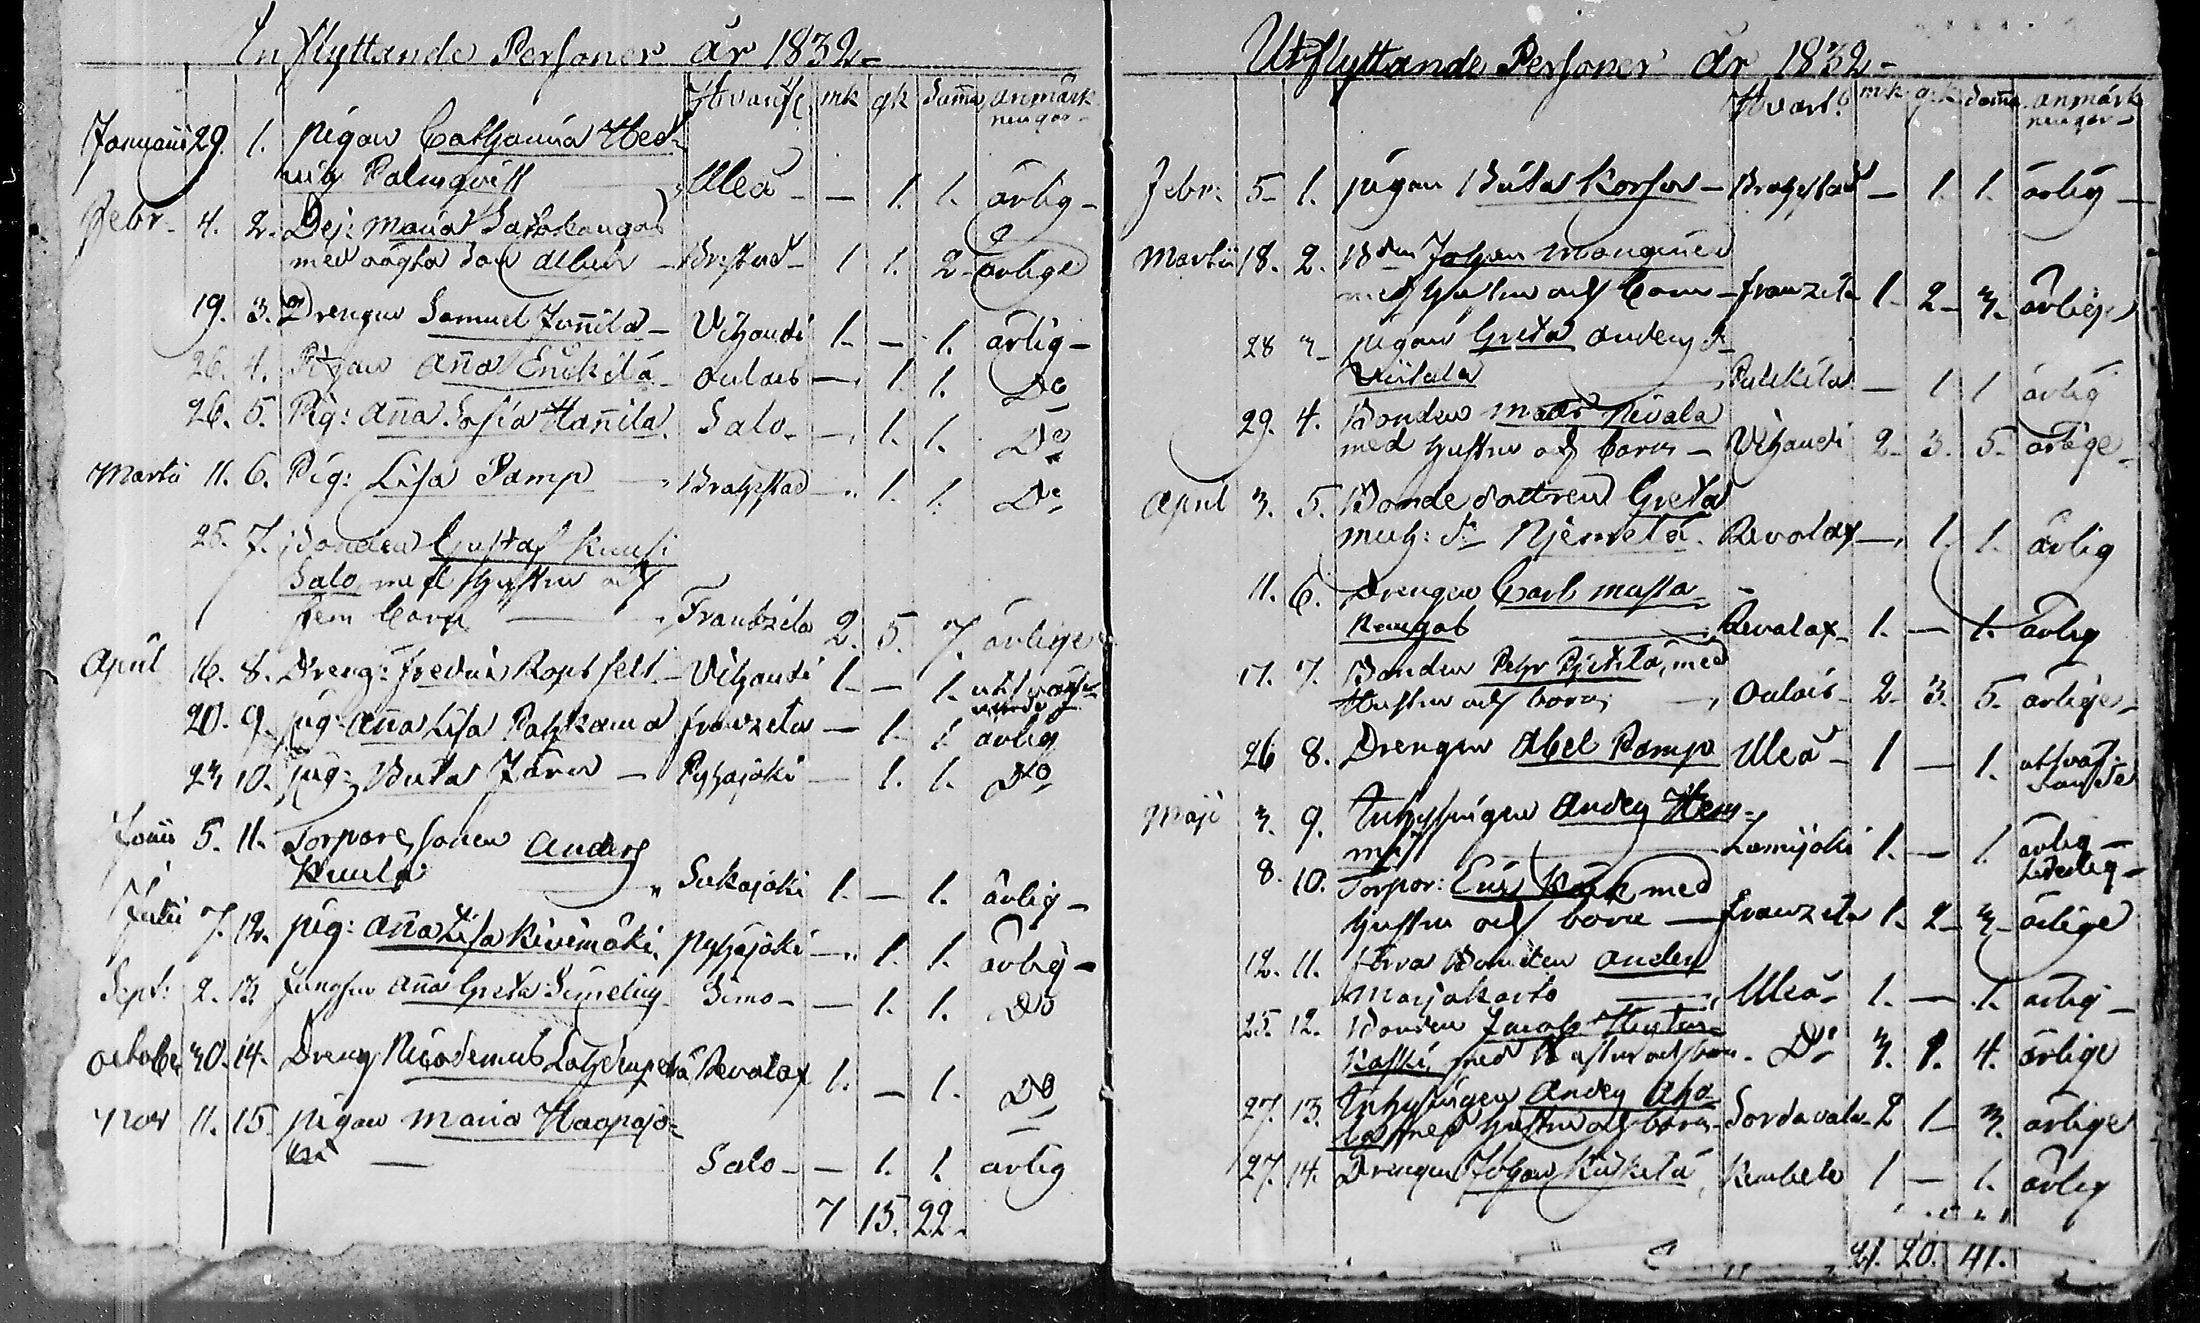 Inflyttande Personer år 1832
Hvarifr mk qk Sum̄a anmärk
ningar
Januarii 29. 1. pigan Catharina Hed-
vig Palmqvist — Uleå — 1. 1. ärlig
Febr. 4. 2. Dej: Maria
med oägta Son — Brestad 1 1. 2 ärlige
19. 3. Drengen Samuel Jun̄ila Vihandi 1. — 1. ärlig
26. 4. Pigan An̄a Erickilä Oulais — 1. 1. Do
26. 5. Pig: An̄a Sofia Han̄ila Salo — 1. 1. Do
Martii 11. 6. Pig: Lisa Pamp — Brahestad — 1. 1. Do
25. 7. Bonden Gustaf Kuusi
Salo med Hustru och
fem barn — Frantzila 2. 5. 7. ärlige
April 16. 8. Dreng: Fredric Vihandi 1. — 1.
20. 9. pig: An̄a Lisa Pahkama Franzila — 1. 1. ärlig
23. 10. pig: Brita — Pyhäjoki — 1. 1. Do
Junii 5. 11. Torpare Sonen Anders
Siikajoki 1. — 1. ärlig
Julii 7. 12. pig: An̄a Lisa Kivimäki Pyhäjoki — 1. 1. ärlig
Sept: 2. 13. Jungfru An̄a Greta Simelius Simo — 1. 1. Do
October 30. 14. Dreng Nicodemus Revolax 1. — 1. Do
Nov 11. 15. pigan Maria Haapajo-
ki — Salo — 1. 1. ärlig
7 15. 22
Utflyttande Personer år 1832
Hvart. mk qk Sum̄a anmärk
ningar
Febr: 5. 1. pigan Brita Korhon Brahestad — 1. 1. ärlig
Martii 18. 2. Bden Johan Manginen
med hustru och barn Franzila 1. 2. 3. ärlige
28 3 pigan Greta Anders d.
Viitala — Pulkila — 1 1 ärlig
29. 4. Bonden Mats Nivala
med hustru och barn Vihandi 2. 3. 5. ärlige
April 3. 5. Bonde dottren Greta
Mich: dr Njemelä Revolax — 1. 1. ärlig
11. 6. Drengen Carl Musta
Kangas — Revolax 1. — 1. ärlig
17. 7. Bonden Pehr Pjetilä, med
Hustru och barn — Oulais 2. 3. 5. ärlige
26 8. Drengen Abel Pamp Uleå 1 — 1.
Maji 3. 9. Inhysingen Anders Hem-
mi — Lumijoki 1. — 1. ärlig
Liderlig
8. 10. Torpar: Eric med
hustru och barn — Franzila 1. 2. 3. ärlige
12. 11. förra Bonden Anders
Marjakarto — Uleå 1. — 1. ärlig
25. 12. Bonden Jacob
Kaski med Hustru och barn Do 3. 1. 4. ärlige
27. 13. Inhysingen Anders Aho-
la med hustru och barn Sordavala 2 1 3. ärlige
27. 14. Drengen Johan Kempele 1 — 1. ärlig
21. 20. 41.